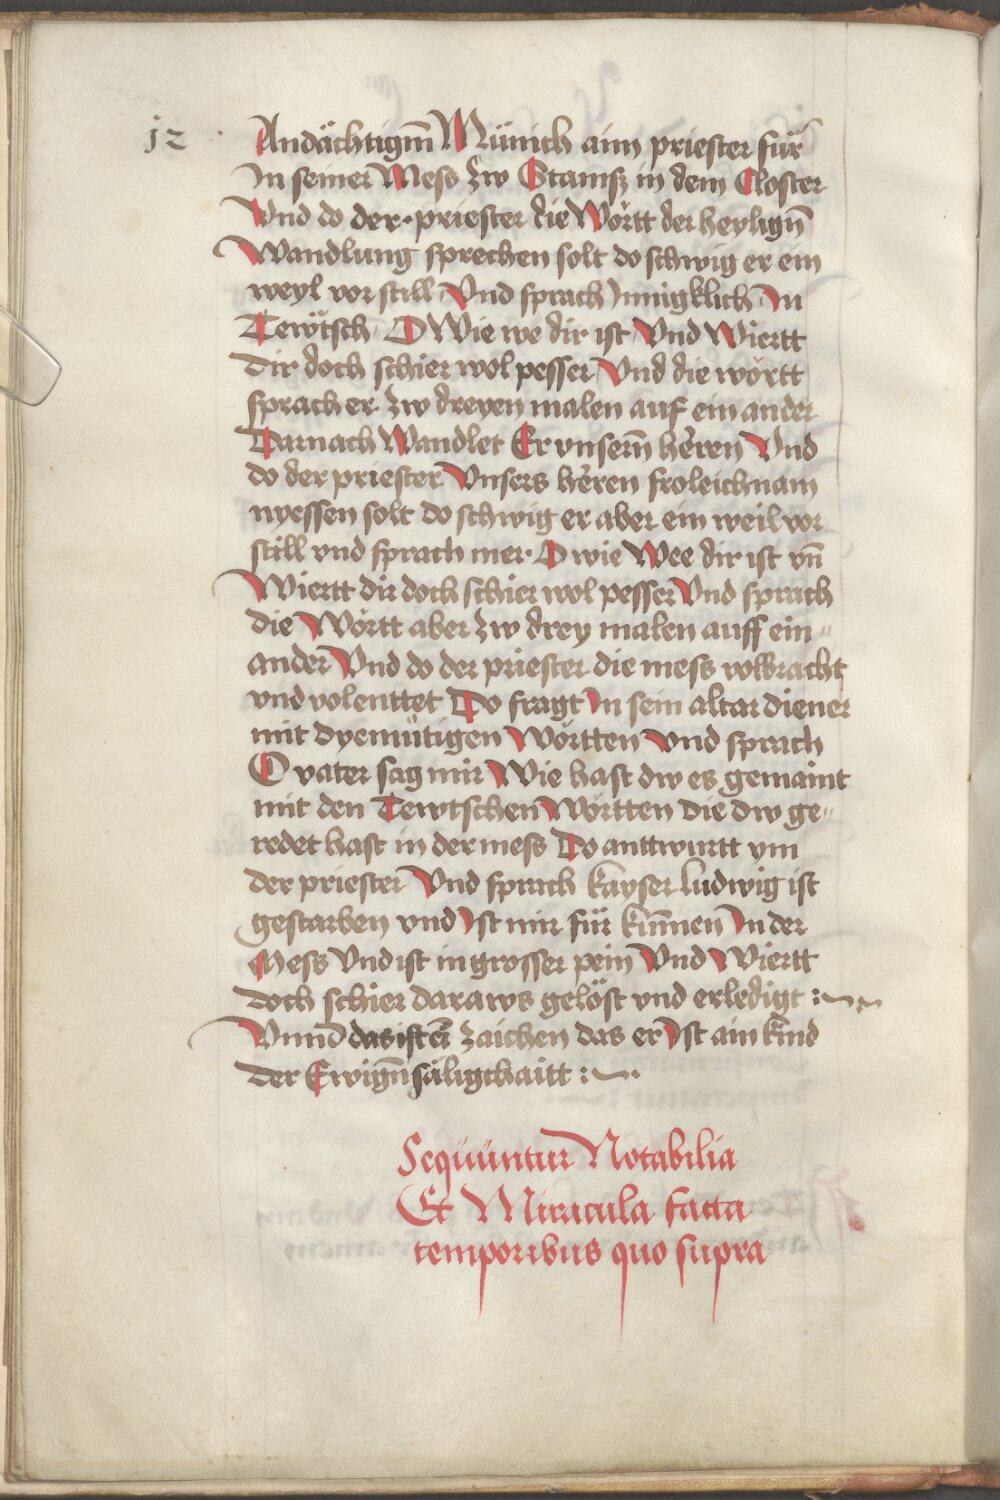 12
Andächtigm̄ Münich ainn priester für
In seiner Mess zw Stamß in dem Closter
Vnd do der priester die Wörtt der heylign̄
Wandlung sprechen solt do schwig er ein
weyl vor still Vnd sprach Innigklich In
Tewtsch O Wie we dir ist Vnd Wiertt
dir doch schier wol pesser Vnd die wörtt
sprach er zw dreyen malen auf ein ander
Darnach Wandlet Er vnserm̄ hēren Vnd
do der priester Vnsers hēren froleichnam
nyessen solt do schwig er aber ein weil vor
still vnd sprach mer· O wie Wee dir ist vn̄
Wiertt dir doch schier wol pesser Vnd sprach
die Wörtt aber zw drey malen auff ein"
ander Vnd do der priester die mess volbracht
vnd volenttet Do fragt In sein altar diener
mit dyemütigen Wörtten vnd sprach
O vater sag mir Wie hast dw es gemaint
mit den Tewtschen Wörtten die dw ge"
redet hast in der mess Do anttwurtt ym
der priester Vnd sprach kayser ludwig ist
gestarben vnd Ist mir für kum̄en In der
Mess Vnd ist in grosser pein Vnd Wiertt
doch schier daraws gelöst vnd erledigt :~
Vnnd das ist ei zaichen das er Ist ain kind
der Ewign̄ säligkhaitt :~
Sequuntur Notabilia
Et Miracula facta
temporibus quo supra